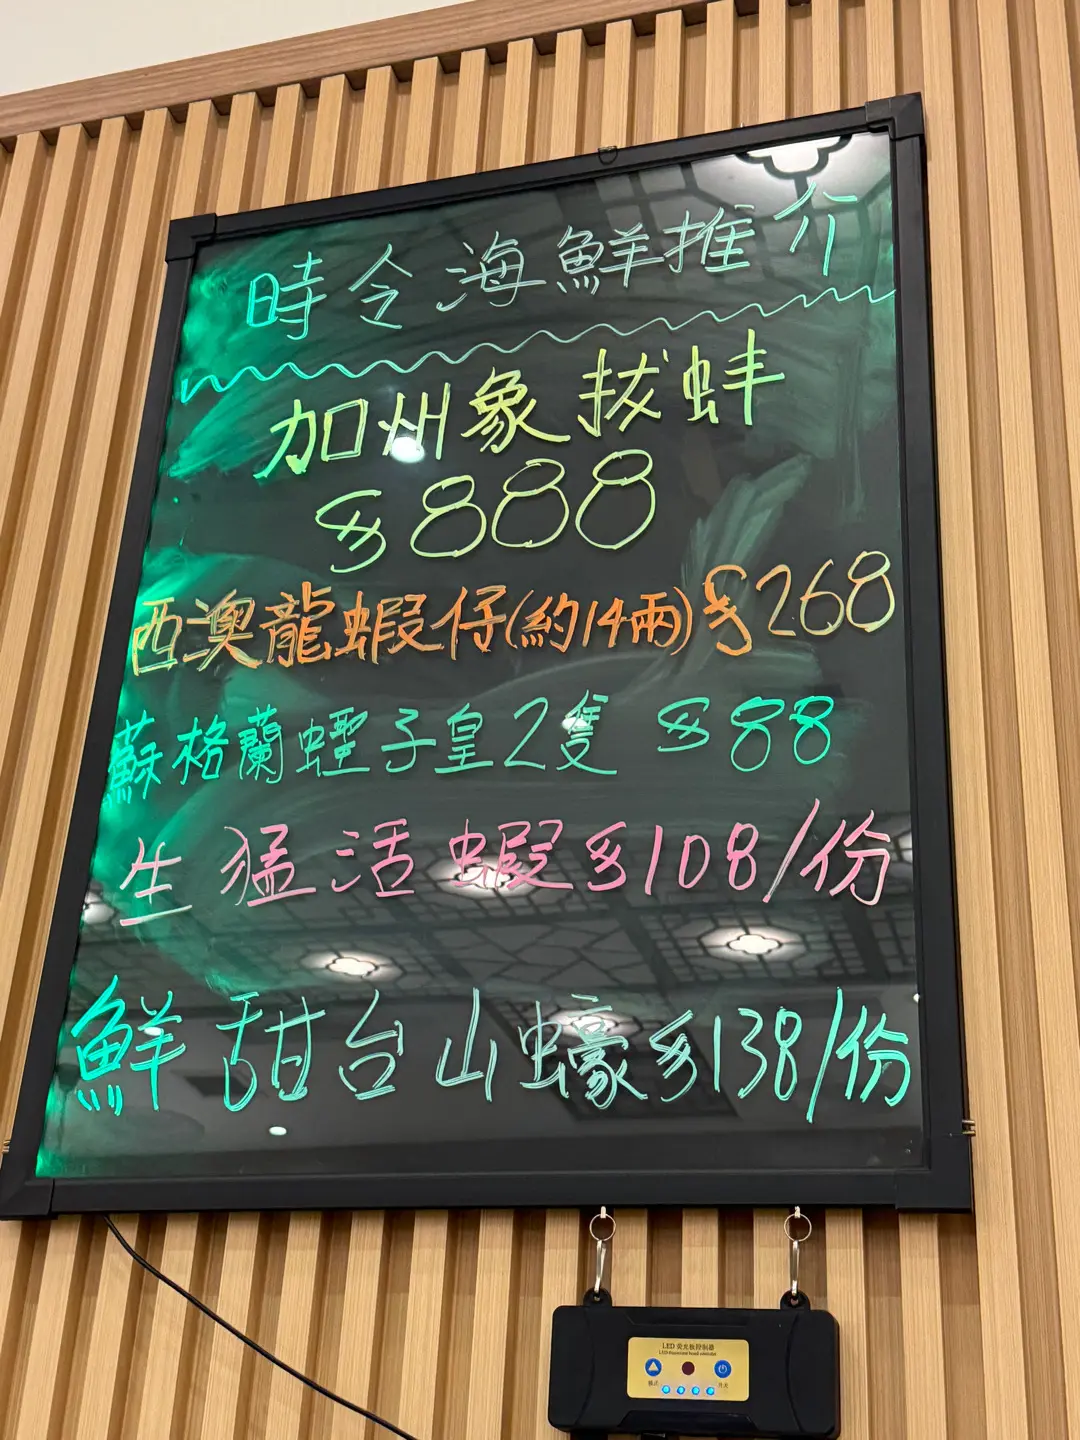 時令海鮮推介
加州象拔蚌
$888
西澳龍蝦仔(約14兩)$268
蘇格蘭蟶子皇2隻 $88
生猛活蝦$108/份
鮮甜台山蠔$138/份
LED 荧光板控制器
模式 开关